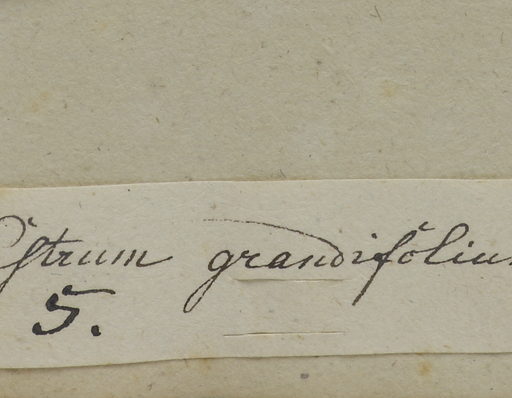 Cestrum grandifoliu
5.